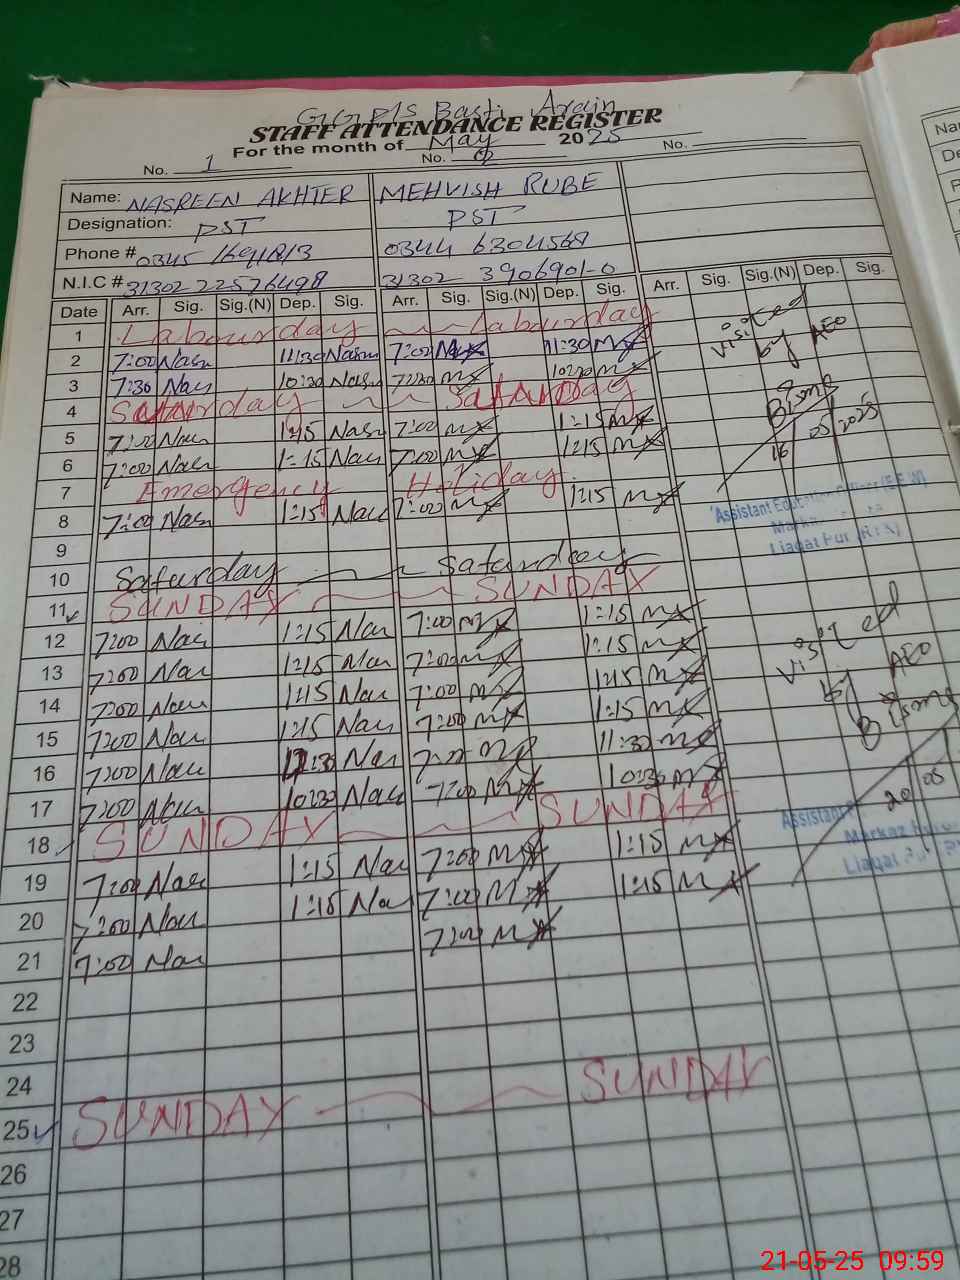 GGP/S Basti Arain
STAFF ATTENDANCE REGISTER
For the month of May 2025
No. 1 No. No.
Name: NASREEN AKHTER MEHVISH RUBE
Designation: PST PST
Phone # 0344 6304568
N.I.C # 31302 3906901-0
Date Arr. Sig. Sig.(N) Dep. Sig. Arr. Sig. Sig.(N) Dep. Sig. Arr. Sig. Sig.(N) Dep. Sig.
1 Labourday Labourday
2 7:00 Nasn 11:30 Nasn 7:00 11:30
3 7:30 Nas 10:30 Nasn 7:30 10:30
4 Saturday Saturday
5 7:00 Nas 1:15 Nasn 7:00 1:15
6 7:00 Nas 1:15 Nas 7:00 1:15
7 Emergency Holiday
8 7:00 Nasn 1:15 Nas 7:00 1:15
9
10 Saturday Saturday
11 SUNDAY SUNDAY
12 7:00 Nas 1:15 Nas 7:00 1:15
13 7:00 Nas 1:15 Nas 7:00 1:15
14 7:00 Nas 1:15 Nas 7:00 1:15
15 7:00 Nas 1:15 Nas 7:00 1:15
16 7:00 Nas Nas 7:00 11:30
17 7:00 Nas 10:30 Nas 7:00 10:30
18 SUNDAY SUNDAY
19 7:00 Nas 1:15 Nas 7:00 1:15
20 7:00 Nas 1:15 Nas 7:00 1:15
21 7:00 Nas 7:00
22
23
24
25 SUNDAY SUNDAY
26
27
28
Visited
by AEO
16 05 2025
Assistant Education Officer
Liaqat Pur (R.Y.K)
Visited
by AEO
20 05
Assistant
Markaz
Liaqat Pur
21-05-25 09:59